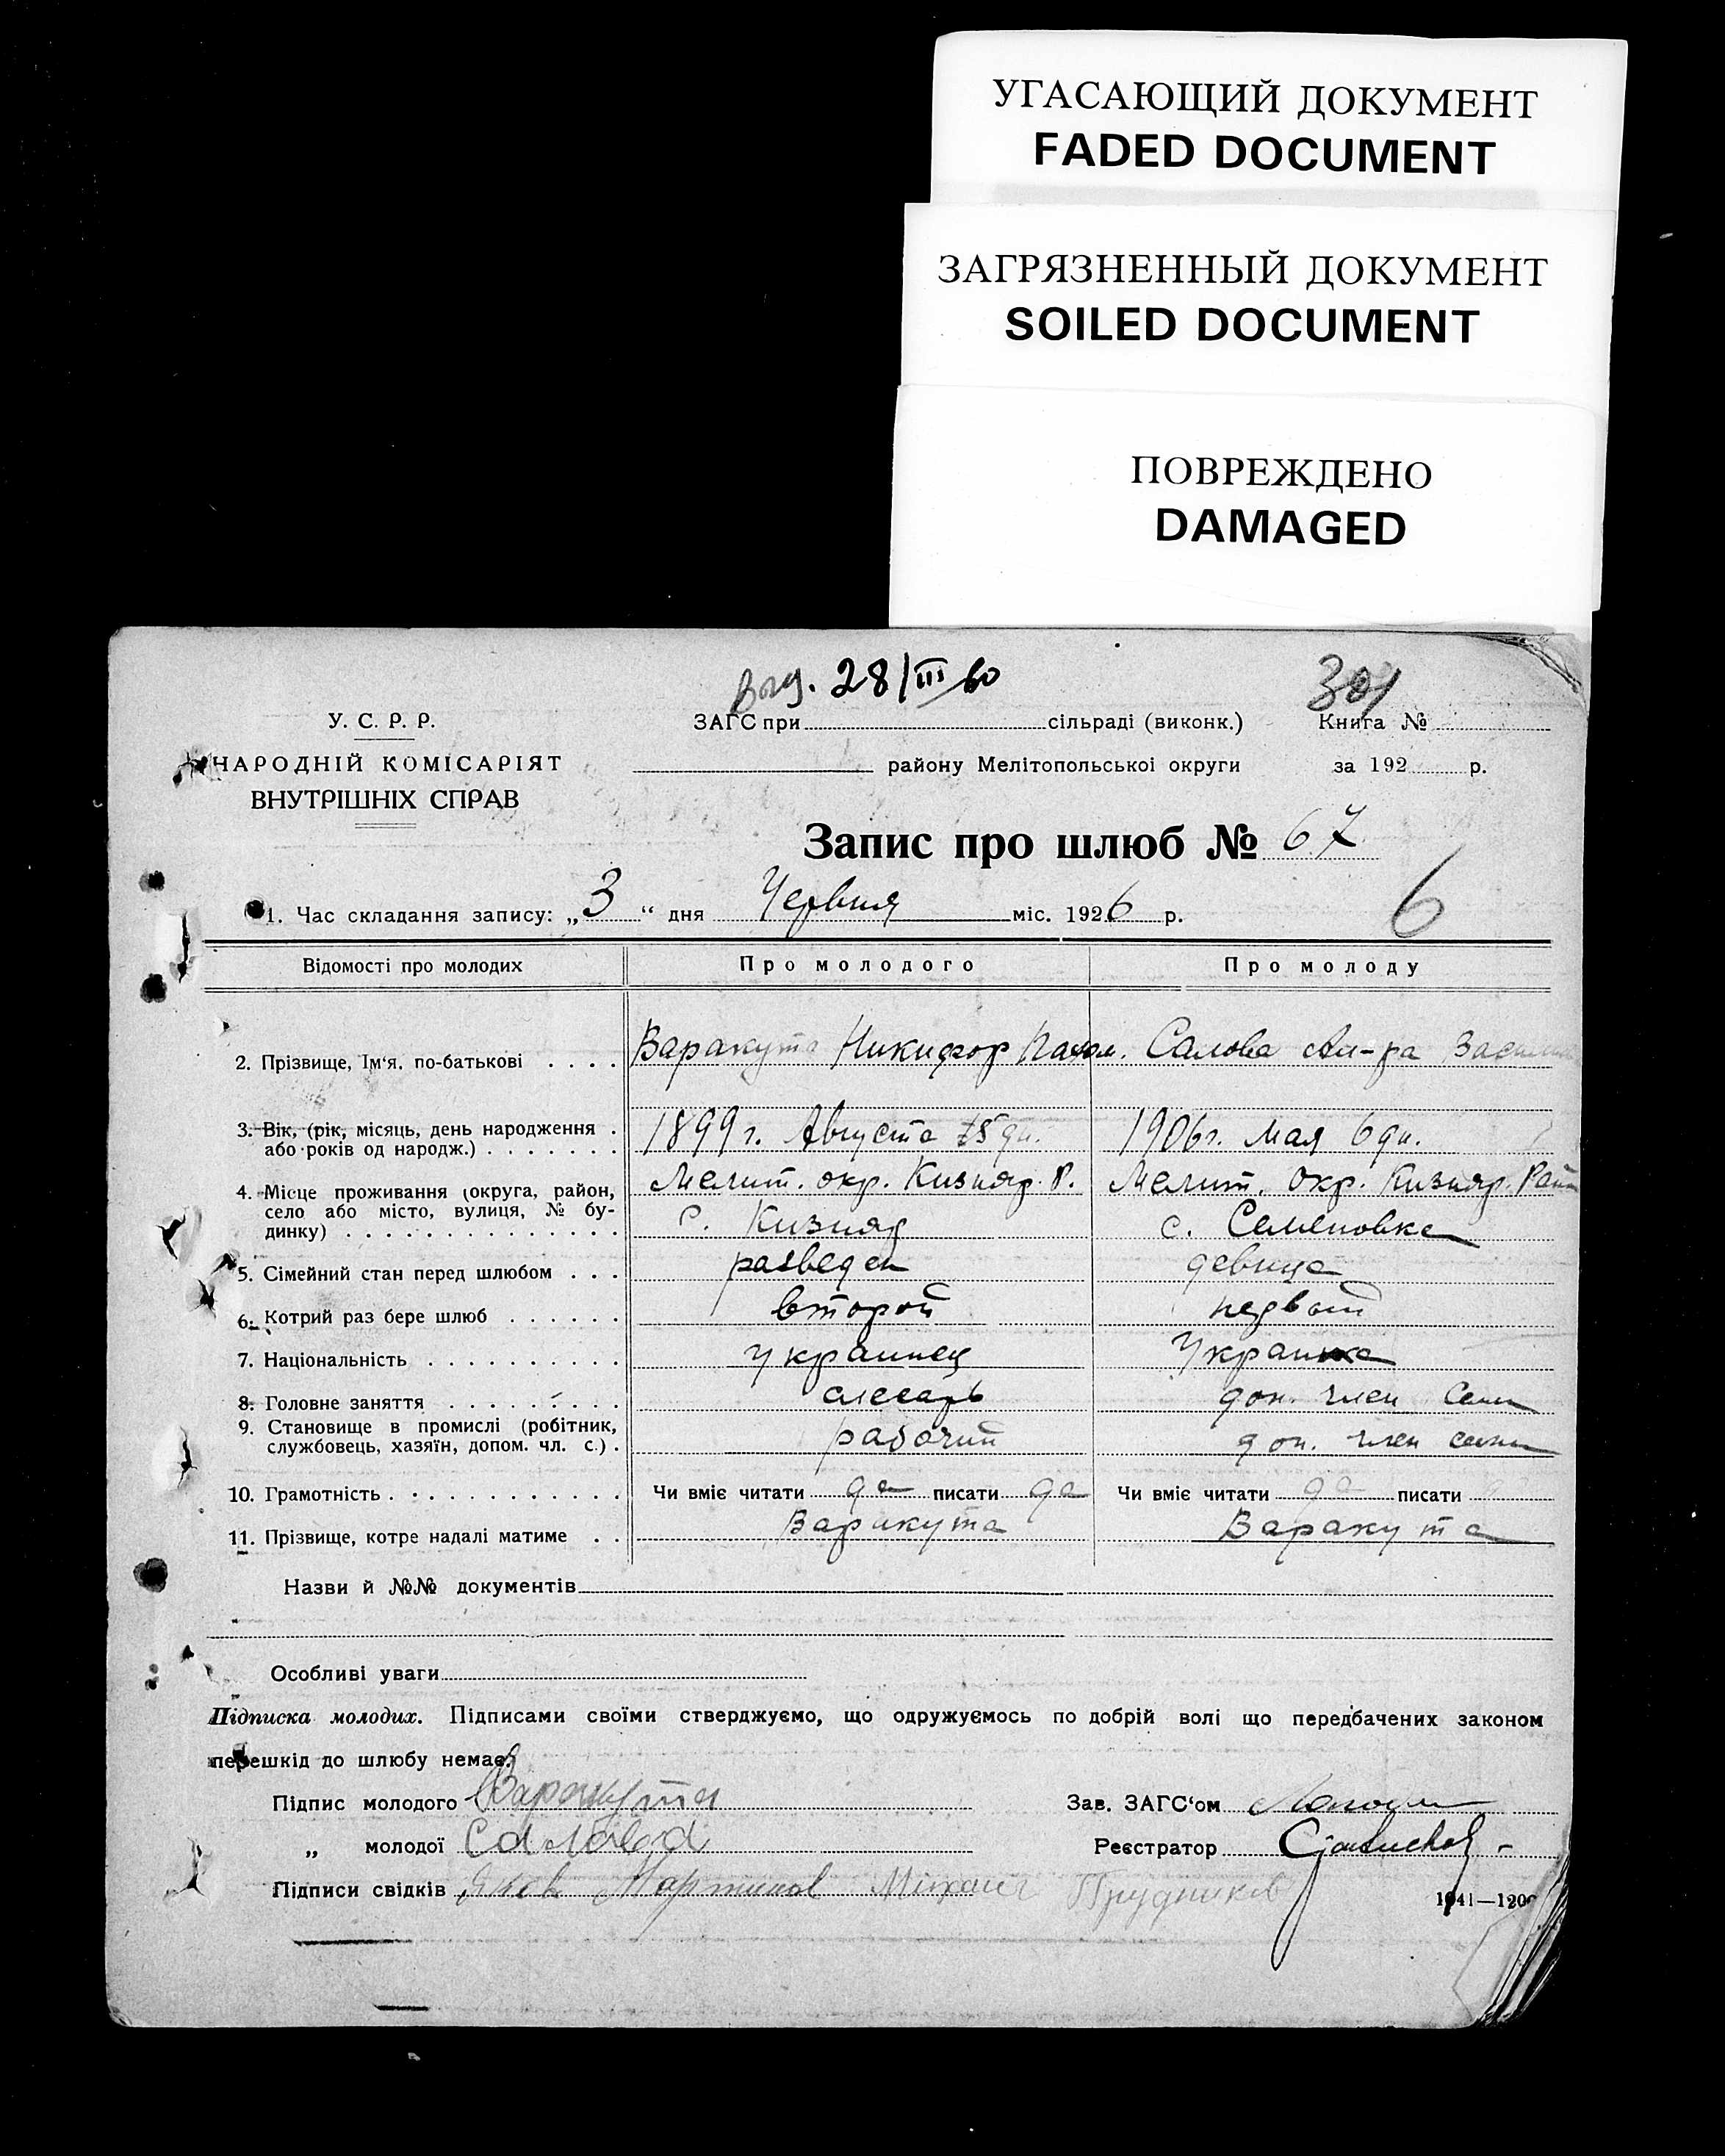 УГАСАЮЩИЙ ДОКУМЕНТ
FADED DOCUMENT
ЗАГРЯЗНЕННЫЙ ДОКУМЕНТ
SOILED DOCUMENT
ПОВРЕЖДЕНО
DAMAGED
28/III/60
301
У. С. Р. Р.
НАРОДНІЙ КОМІСАРІЯТ
ВНУТРІШНІХ СПРАВ
ЗАГС при сільраді (виконк.) Книга №
району Мелітопольської округи за 192 р.
Запис про шлюб № 67
6
1. Час складання запису: „3“ дня Червня міс. 1926 р.
Відомості про молодих Про молодого Про молоду
2. Прізвище, Ім‘я. по-батькові . . . . Варакута Никифор Салова Ал-ра
3. Вік, (рік, місяць, день народження . 1899 г. Августа 15 дн. 1906 г. Мая 6 дн.
або років од народж.) . . . . . . .
4. Місце проживання (округа, район, Мелит. окр. Кизияр. Р. Мелит. Окр. Кизияр. Рай
село або місто, вулиця, № бу- с. Кизияр с. Семеновка
динку) . . . . . . . . . . . . . .
5. Сімейний стан перед шлюбом . . . разведен девица
6. Котрий раз бере шлюб . . . . . . второй первый
7. Національність . . . . . . . . . . украинец Украинка
8. Головне заняття . . . . . . . . . слесарь доп. член семи
9. Становище в промислі (робітник, рабочий доп. член семи
службовець, хазяїн, допом. чл. с.) .
10. Грамотність . . . . . . . . . . . . Чи вміє читати да писати да Чи вміє читати да писати
11. Прізвище, котре надалі матиме . . Варакута Варакута
Назви й №№ документів
Особливі уваги
Підписка молодих. Підписами своїми стверджуємо, що одружуємось по добрій волі що передбачених законом
перешкід до шлюбу немає.
Підпис молодого Варакута Зав. ЗАГС‘ом
„ молодої Салова Реєстратор
Підписи свідків Яков Мартинов Михаил Прудников 1941—120